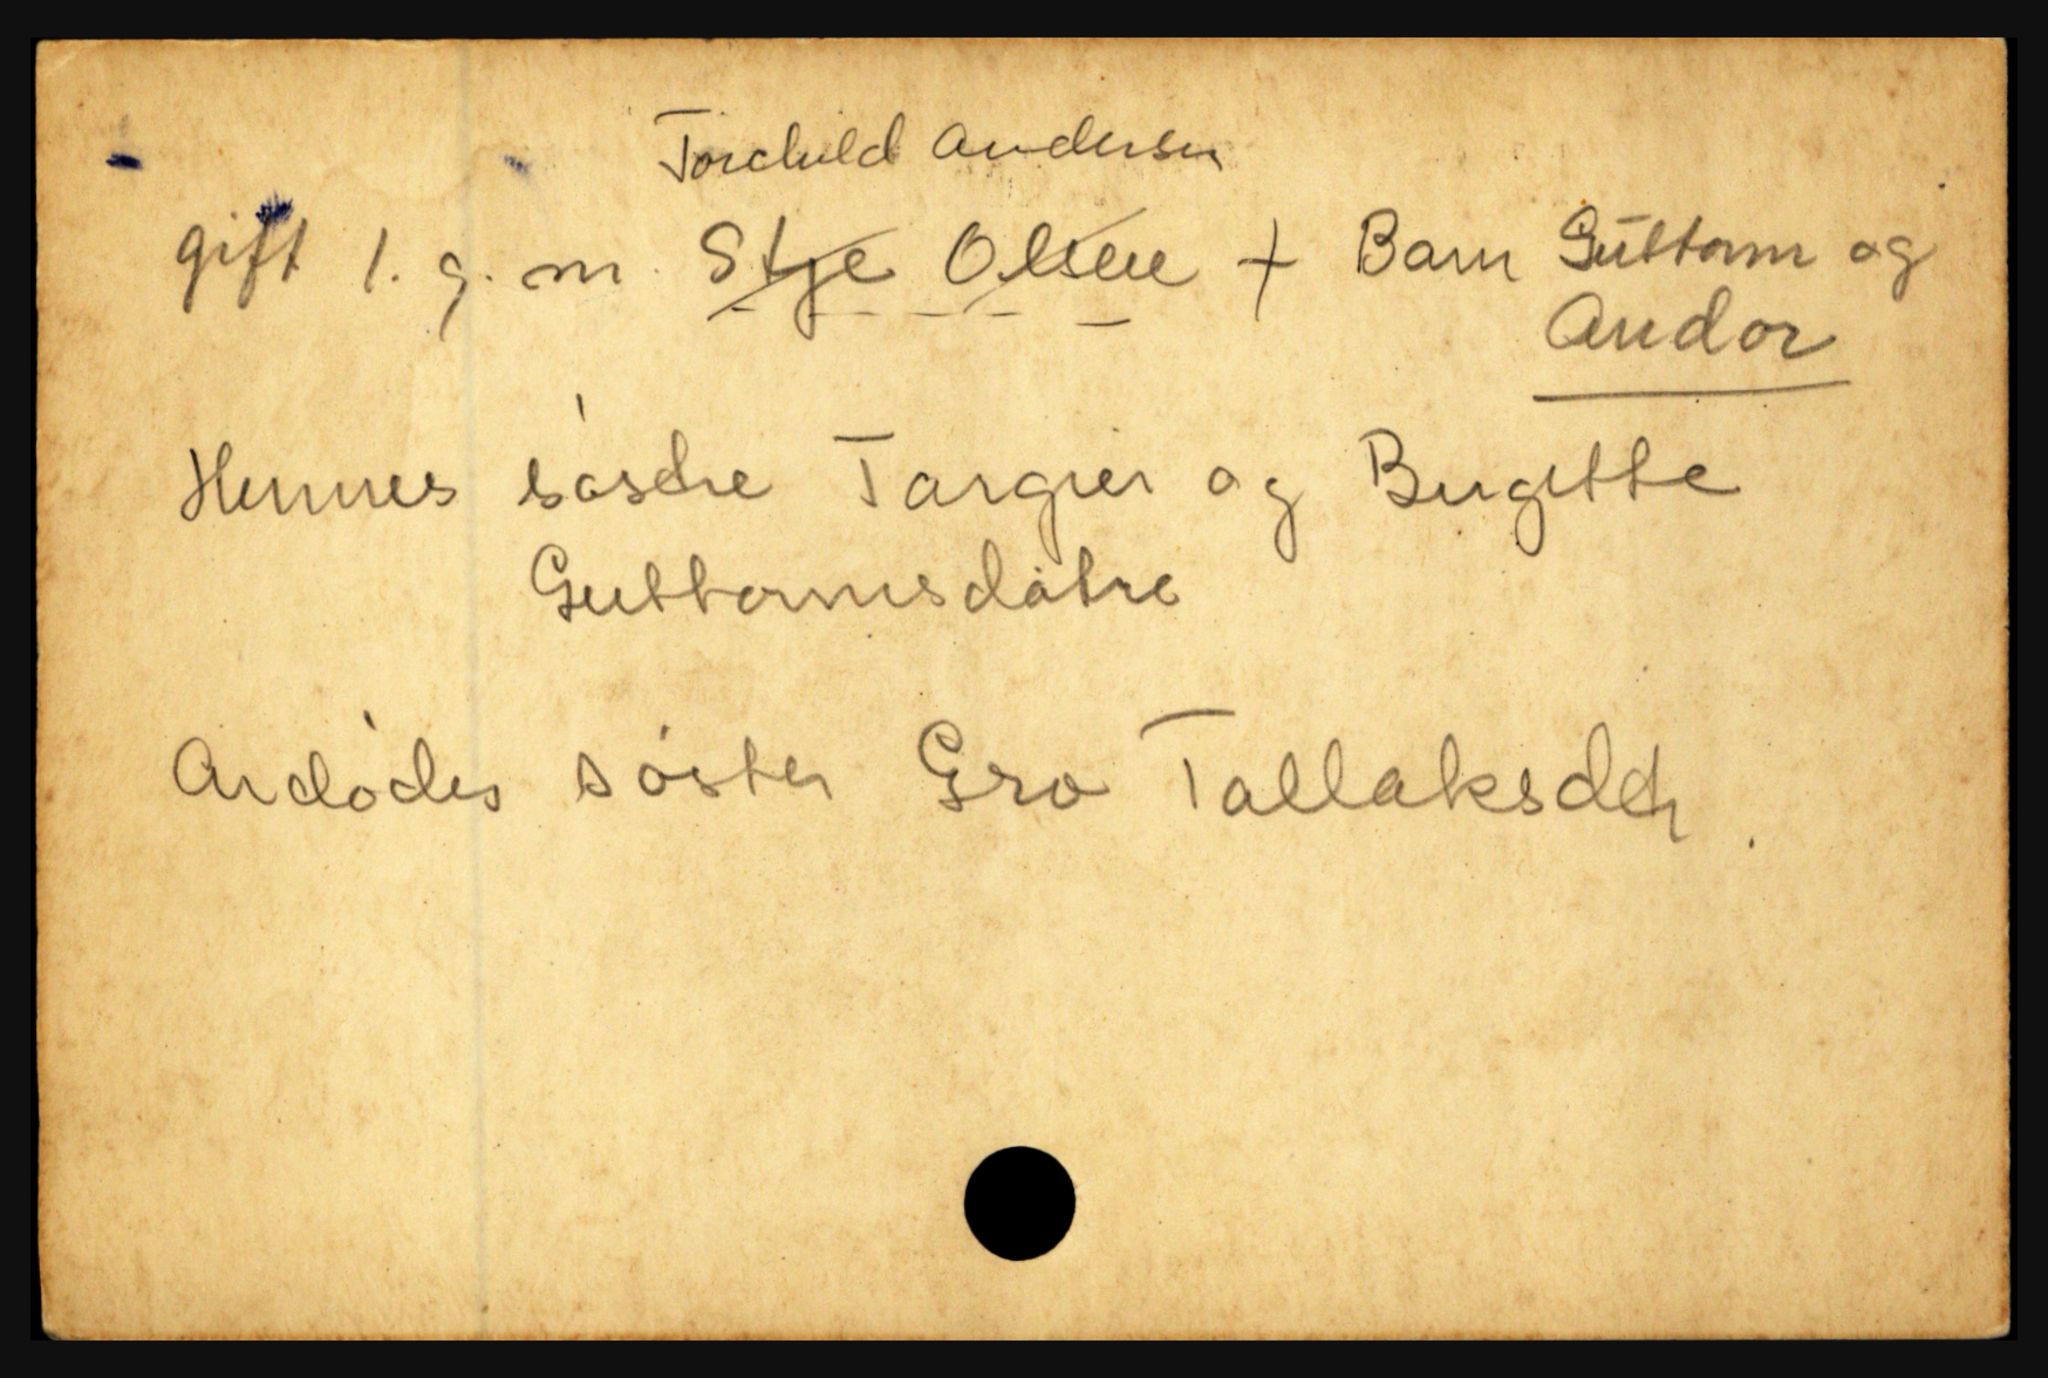 Torchild Andersen
gift 1. g. m. Stje Olsen + Barn Guttorm og
Andor
Hennes søsdre Targier og Birgitte
Guttormsdøtre
Avdødes søster Gro Tallaksdtr.